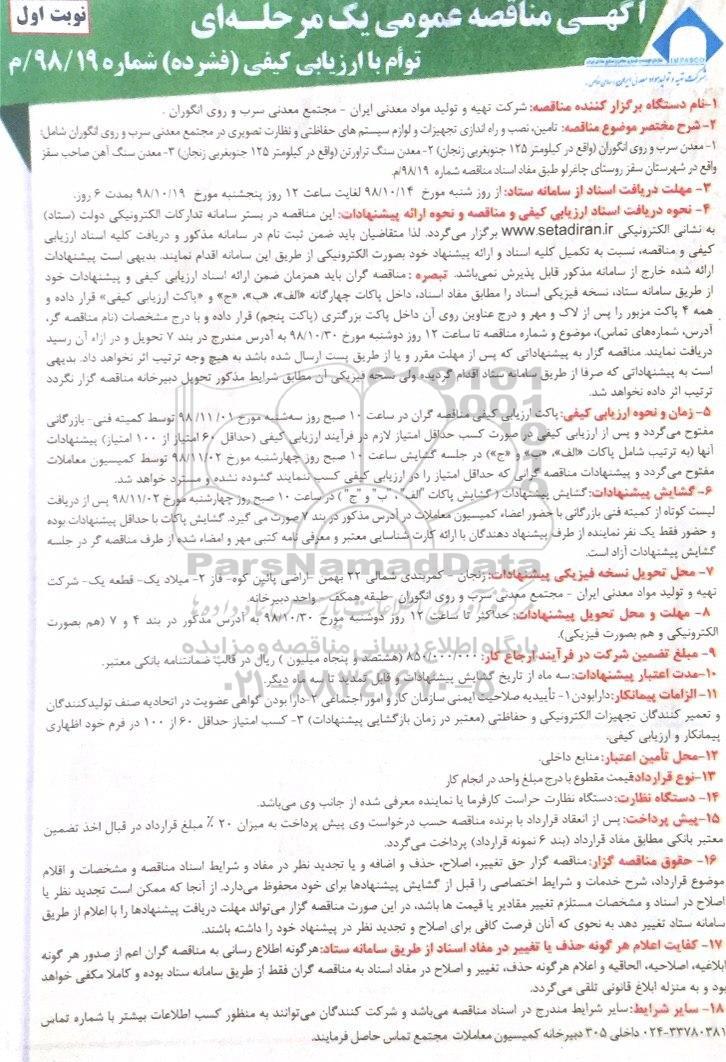 آگهـی مناقصه عمومی یک مرحله‌ای
نوبت اول
توأم با ارزیابی کیفی (فشرده) شماره ۹۸/۱۹/م
IMPASCO
شرکت تهیه و تولید مواد معدنی ایران
۱-نام دستگاه برگزار کننده مناقصه: شرکت تهیه و تولید مواد معدنی ایران - مجتمع معدنی سرب و روی انگوران .
۲-شرح مختصر موضوع مناقصه: تامین، نصب و راه اندازی تجهیزات و لوازم سیستم های حفاظتی و نظارت تصویری در مجتمع معدنی سرب و روی انگوران شامل:
۱-معدن سرب و روی انگوران (واقع در کیلومتر ۱۲۵ جنوبغربی زنجان) ۲-معدن سنگ تراورتن (واقع در کیلومتر ۱۲۵ جنوبغربی زنجان) ۳-معدن سنگ آهن صاحب سقز
واقع در شهرستان سقز روستای چاغرلو طبق مفاد اسناد مناقصه شماره ۹۸/۱۹م.
۳- مهلت دریافت اسناد از سامانه ستاد: از روز شنبه مورخ ۹۸/۱۰/۱۴ لغایت ساعت ۱۲ روز پنجشنبه مورخ ۹۸/۱۰/۱۹ بمدت ۶ روز.
۴- نحوه دریافت اسناد ارزیابی کیفی و مناقصه و نحوه ارائه پیشنهادات: این مناقصه در بستر سامانه تدارکات الکترونیکی دولت (ستاد)
به نشانی الکترونیکی www.setadiran.ir برگزار می‌گردد. لذا متقاضیان باید ضمن ثبت نام در سامانه مذکور و دریافت کلیه اسناد ارزیابی
کیفی و مناقصه، نسبت به تکمیل کلیه اسناد و ارائه پیشنهاد خود بصورت الکترونیکی از طریق این سامانه اقدام نمایند. بدیهی است پیشنهادات
ارائه شده خارج از سامانه مذکور قابل پذیرش نمی‌باشد. تبصره : مناقصه گران باید همزمان ضمن ارائه اسناد ارزیابی کیفی و پیشنهادات خود
از طریق سامانه ستاد، نسخه فیزیکی اسناد را مطابق مفاد اسناد، داخل پاکات چهارگانه «الف»، «ب»، «ج» و «پاکت ارزیابی کیفی» قرار داده و
همه ۴ پاکت مزبور را پس از لاک و مهر و درج عناوین روی آن داخل پاکت بزرگتری (پاکت پنجم) قرار داده و با درج مشخصات (نام مناقصه گر،
آدرس، شماره‌های تماس)، موضوع و شماره مناقصه تا ساعت ۱۲ روز دوشنبه مورخ ۹۸/۱۰/۳۰ به آدرس مندرج در بند ۷ تحویل و در ازاء آن رسید
دریافت نمایند. مناقصه گزار به پیشنهاداتی که پس از مهلت مقرر و یا از طریق پست ارسال شده باشد به هیچ وجه ترتیب اثر نخواهد داد. بدیهی
است به پیشنهاداتی که صرفا از طریق سامانه ستاد اقدام گردیده ولی نسخه فیزیکی آن مطابق شرایط مذکور تحویل دبیرخانه مناقصه گزار نگردد
ترتیب اثر داده نخواهد شد.
۵- زمان و نحوه ارزیابی کیفی: پاکت ارزیابی کیفی مناقصه گران در ساعت ۱۰ صبح روز سه‌شنبه مورخ ۹۸/۱۱/۰۱ توسط کمیته فنی- بازرگانی
مفتوح می‌گردد و پس از ارزیابی کیفی در صورت کسب حداقل امتیاز لازم در فرآیند ارزیابی کیفی (حداقل ۶۰ امتیاز از ۱۰۰ امتیاز) پیشنهادات
آنها (به ترتیب شامل پاکات «الف»، «ب» و «ج») در جلسه گشایش ساعت ۱۰ صبح روز چهارشنبه مورخ ۹۸/۱۱/۰۲ توسط کمیسیون معاملات
مفتوح می‌گردد و پیشنهادات مناقصه گرانی که حداقل امتیاز را در ارزیابی کیفی کسب ننمایند گشوده نشده و مسترد خواهد شد.
۶- گشایش پیشنهادات: گشایش پیشنهادات ( گشایش پاکات "الف"، "ب" و "ج") در ساعت ۱۰ صبح روز چهارشنبه مورخ ۹۸/۱۱/۰۲ پس از دریافت
لیست کوتاه از کمیته فنی بازرگانی با حضور اعضاء کمیسیون معاملات در آدرس مذکور در بند ۷ صورت می گیرد. گشایش پاکات با حداقل پیشنهادات بوده
و حضور فقط یک نفر نماینده از طرف پیشنهاد دهندگان با ارائه کارت شناسایی معتبر و معرفی نامه کتبی مهر و امضاء شده از طرف مناقصه گر در جلسه
گشایش پیشنهادات آزاد است.
ParsNamadData
۷- محل تحویل نسخه فیزیکی پیشنهادات: زنجان - کمربندی شمالی ۲۲ بهمن -اراضی پائین کوه- فاز ۲- میلاد یک- قطعه یک- شرکت
تهیه و تولید مواد معدنی ایران - مجتمع معدنی سرب و روی انگوران -طبقه همکف - واحد دبیرخانه.
۸- مهلت و محل تحویل پیشنهادات: حداکثر تا ساعت ۱۲ روز دوشنبه مورخ ۹۸/۱۰/۳۰ به آدرس مذکور در بند ۴ و ۷ (هم بصورت
الکترونیکی و هم بصورت فیزیکی).
پایگاه اطلاع رسانی مناقصه و مزایده
۹- مبلغ تضمین شرکت در فرآیند ارجاع کار: ۸۵۰/۰۰۰/۰۰۰ (هشتصد و پنجاه میلیون ) ریال در قالب ضمانتنامه بانکی معتبر.
۱۰-مدت اعتبار پیشنهادات: سه ماه از تاریخ گشایش پیشنهادات و قابل تمدید تا سه ماه دیگر.
۰۲۱-۸۸۳۴۹۶۷۰-۵
۱۱- الزامات پیمانکار: دارابودن ۱- تأییدیه صلاحیت ایمنی سازمان کار و امور اجتماعی ۲-دارا بودن گواهی عضویت در اتحادیه صنف تولیدکنندگان
و تعمیر کنندگان تجهیزات الکترونیکی و حفاظتی (معتبر در زمان بازگشایی پیشنهادات) ۳- کسب امتیاز حداقل ۶۰ از ۱۰۰ در فرم خود اظهاری
پیمانکار و ارزیابی کیفی.
۱۲-محل تأمین اعتبار: منابع داخلی.
۱۳-نوع قرارداد: قیمت مقطوع با درج مبلغ واحد در انجام کار
۱۴- دستگاه نظارت: دستگاه نظارت حراست کارفرما یا نماینده معرفی شده از جانب وی می‌باشد.
۱۵-پیش پرداخت: پس از انعقاد قرارداد با برنده مناقصه حسب درخواست وی پیش پرداخت به میزان ۲۰ ٪ مبلغ قرارداد در قبال اخذ تضمین
معتبر بانکی مطابق مفاد قرارداد (بند ۶ نمونه قرارداد) پرداخت می‌گردد.
۱۶- حقوق مناقصه گزار: مناقصه گزار حق تغییر، اصلاح، حذف و اضافه و یا تجدید نظر در مفاد و شرایط اسناد مناقصه و مشخصات و اقلام
موضوع قرارداد، شرح خدمات و شرایط اختصاصی را قبل از گشایش پیشنهادها برای خود محفوظ می‌دارد. از آنجا که ممکن است تجدید نظر یا
اصلاح در اسناد و مشخصات مستلزم تغییر مقادیر یا قیمت ها باشد، در این صورت مناقصه گزار می‌تواند مهلت دریافت پیشنهادها را با اعلام از طریق
سامانه ستاد تغییر دهد به نحوی که آنان فرصت کافی برای اصلاح و تجدید نظر در پیشنهاد خود را داشته باشند.
۱۷- کفایت اعلام هر گونه حذف یا تغییر در مفاد اسناد از طریق سامانه ستاد: هرگونه اطلاع رسانی به مناقصه گران اعم از صدور هر گونه
ابلاغیه، اصلاحیه، الحاقیه و اعلام هرگونه حذف، تغییر و اصلاح در مفاد اسناد به مناقصه گران فقط از طریق سامانه ستاد بوده و کاملا مکفی خواهد
بود و به منزله ابلاغ قانونی تلقی می‌گردد.
۱۸- سایر شرایط: سایر شرایط مندرج در اسناد مناقصه می‌باشد و شرکت کنندگان می‌توانند به منظور کسب اطلاعات بیشتر با شماره تماس
۰۲۴-۳۳۷۸۰۳۸۱ داخلی ۳۰۵ دبیرخانه کمیسیون معاملات مجتمع تماس حاصل فرمایند.